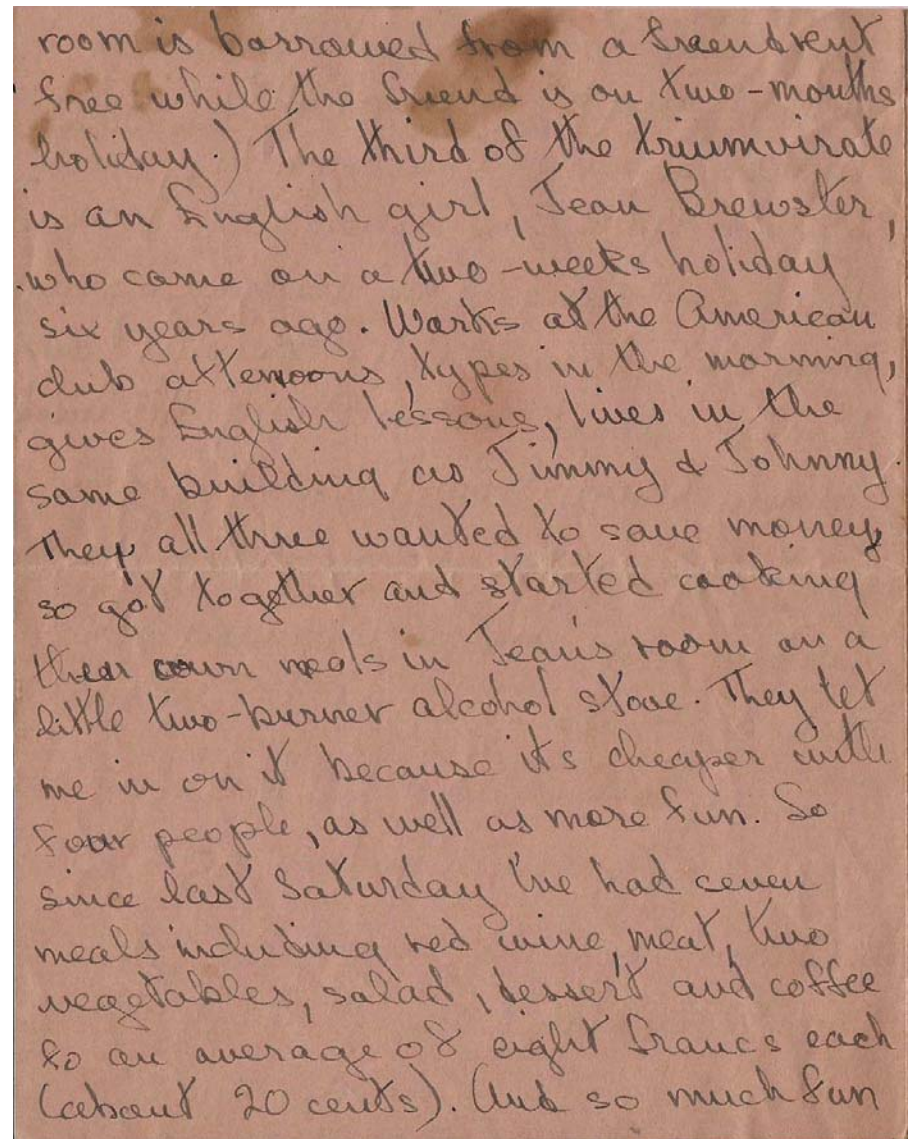 room is borrowed from a friend rent
free while the friend is on two-months
holiday.) The third of the triumvirate
is an English girl, Jean Brewster,
who came on a two-weeks holiday
six years ago. Works at the American
club afternoons, types in the morning,
gives English lessons, lives in the
same building as Jimmy & Johnny.
They all three wanted to save money,
so got together and started cooking
their own meals in Jean's room on a
little two-burner alcohol stove. They let
me in on it because it's cheaper with
four people, as well as more fun. So
since last Saturday I've had seven
meals including red wine, meat, two
vegetables, salad, dessert and coffee
to an average of eight francs each
(about 20 cents). (And so much fun